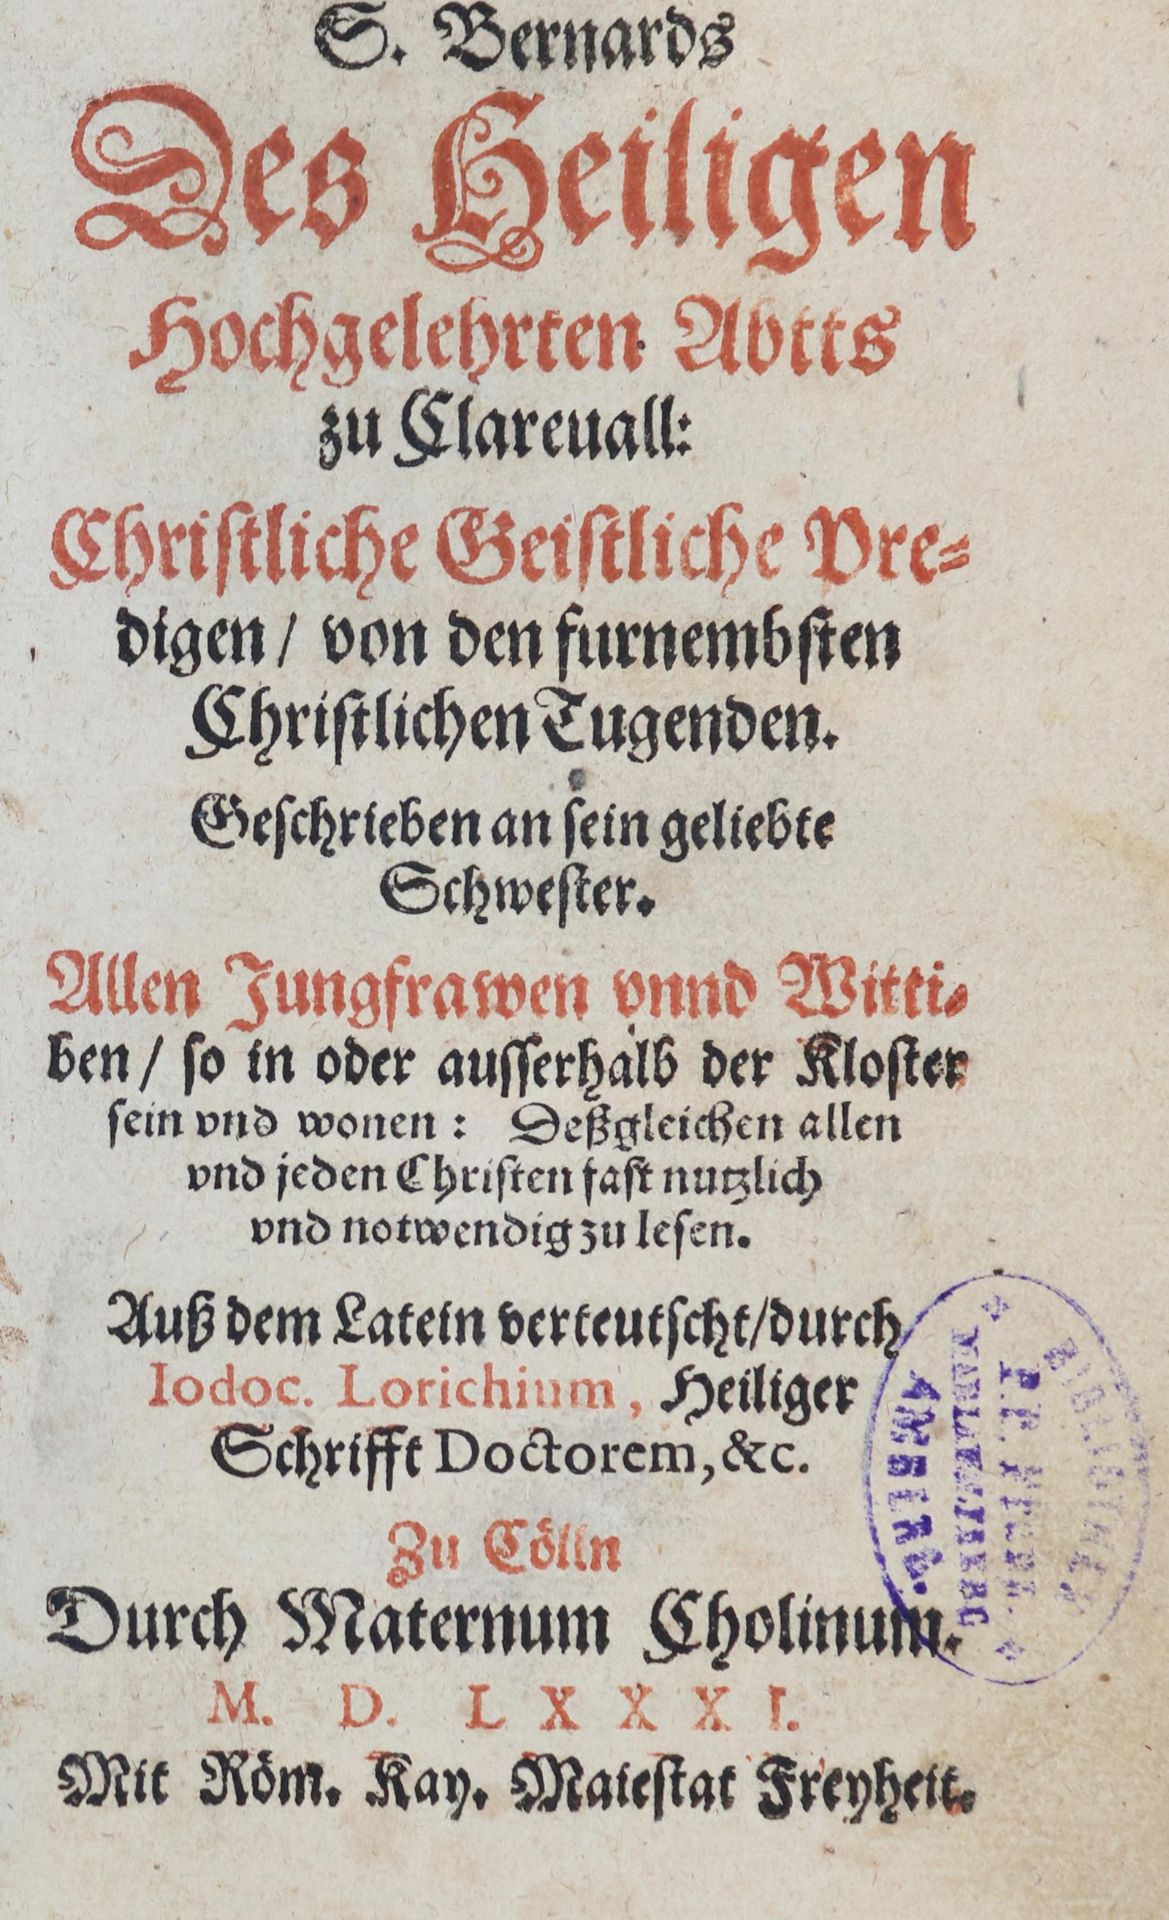 S. Bernards
Des Heiligen
Hochgelehrten Abtts
zu Clareuall:
Christliche Geistliche Pre-
digen/ von den furnembsten
Christlichen Tugenden.
Geschrieben an sein geliebte
Schwester.
Allen Jungfrawen vnnd Witti-
ben/ so in oder ausserhalb der Kloster
sein vnd wonen: Deßgleichen allen
vnd jeden Christen fast nutzlich
vnd notwendig zu lesen.
Auß dem Latein verteutscht/durch
Iodoc. Lorichium, Heiliger
Schrifft Doctorem, &c.
Zu Cölln
Durch Maternum Cholinum.
M. D. LXXXI.
Mit Röm. Kay. Maiestat Freyheit.
BIBLIOTHEK
P.P.
MARIAHILFBERG
AMBERG.